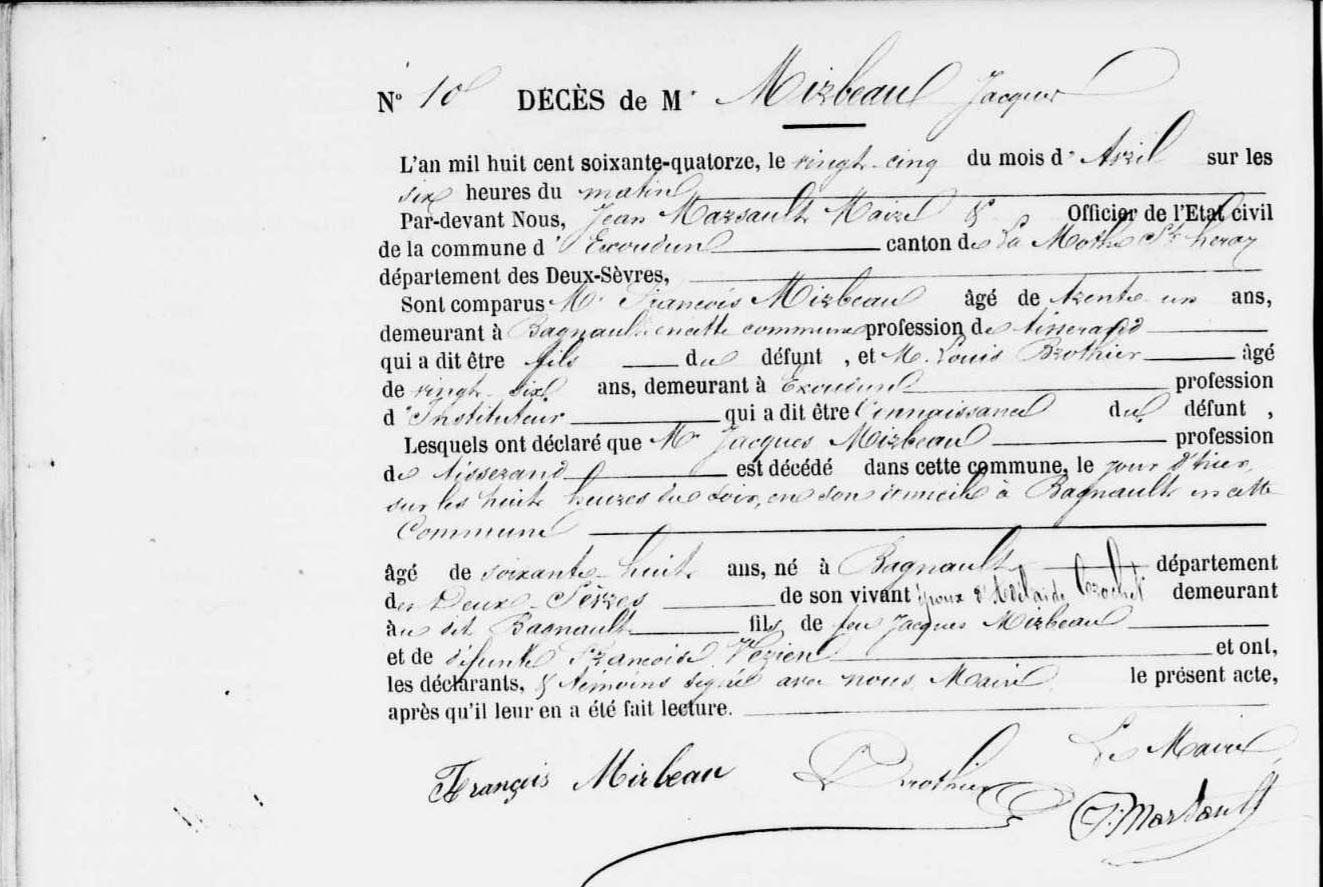 N° 10 DÉCÈS de M. Mirbeau Jacques
L'an mil huit cent soixante-quatorze, le vingt cinq du mois d'Avril sur les
six heures du matin
Par-devant Nous, Jean Marsault Maire & Officier de l'Etat civil
de la commune d'Exoudun canton de La Mothe St heray
département des Deux-Sèvres,
Sont comparus Mr François Mirbeau âgé de trente un ans,
demeurant à Bagnault en cette commune profession de tisserand
qui a dit être fils du défunt , et M. Louis Brothier âgé
de vingt six ans, demeurant à Exoudun profession
d'Instituteur qui a dit être Connaissance du défunt ,
Lesquels ont déclaré que Mr Jacques Mirbeau profession
de tisserand est décédé dans cette commune, le jour d'hier,
sur les huit heures du soir, en son domicile à Bagnault en cette
Commune
âgé de soixante huit ans, né à Bagnault département
des Deux-Sèvres de son vivant époux d'Adélaïde Crochet demeurant
au dit Bagnault fils de feu Jacques Mirbeau
et de défunte Francoise Vezien et ont,
les déclarants, & témoins signé avec nous Maire le présent acte,
après qu'il leur en a été fait lecture.
Le Maire
François Mirbeau Brothier
J. Marsault